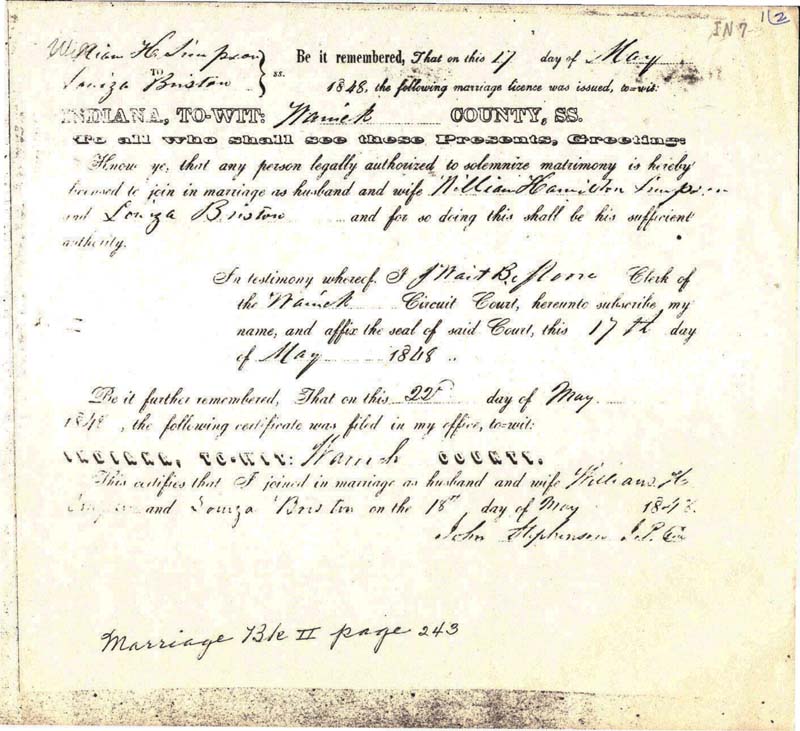 IN 7 112
William H. Simpson Be it remembered, That on this 17 day of May
TO ss. 1848, the following marriage licence was issued, to-wit:
Louiza Bristow
INDIANA, TO-WIT: Warrick COUNTY, SS.
To all who shall see these Presents, Greeting:
Know ye, that any person legally authorized to solemnize matrimony is hereby
licensed to join in marriage as husband and wife William Hamilton Simpson
and Louiza Bristow and for so doing this shall be his sufficient
authority.
In testimony whereof, I Clerk of
the Warrick Circuit Court, hereunto subscribe my
name, and affix the seal of said Court, this 17th day
of May 1848.
Be it further remembered, That on this 22d day of May
1848, the following certificate was filed in my office, to-wit:
INDIANA, TO-WIT: Warrick COUNTY.
This certifies that I joined in marriage as husband and wife William H.
Simpson and Louiza Bristow on the 18th day of May 1848.
John Stephenson J.P.
Marriage Bk II page 243